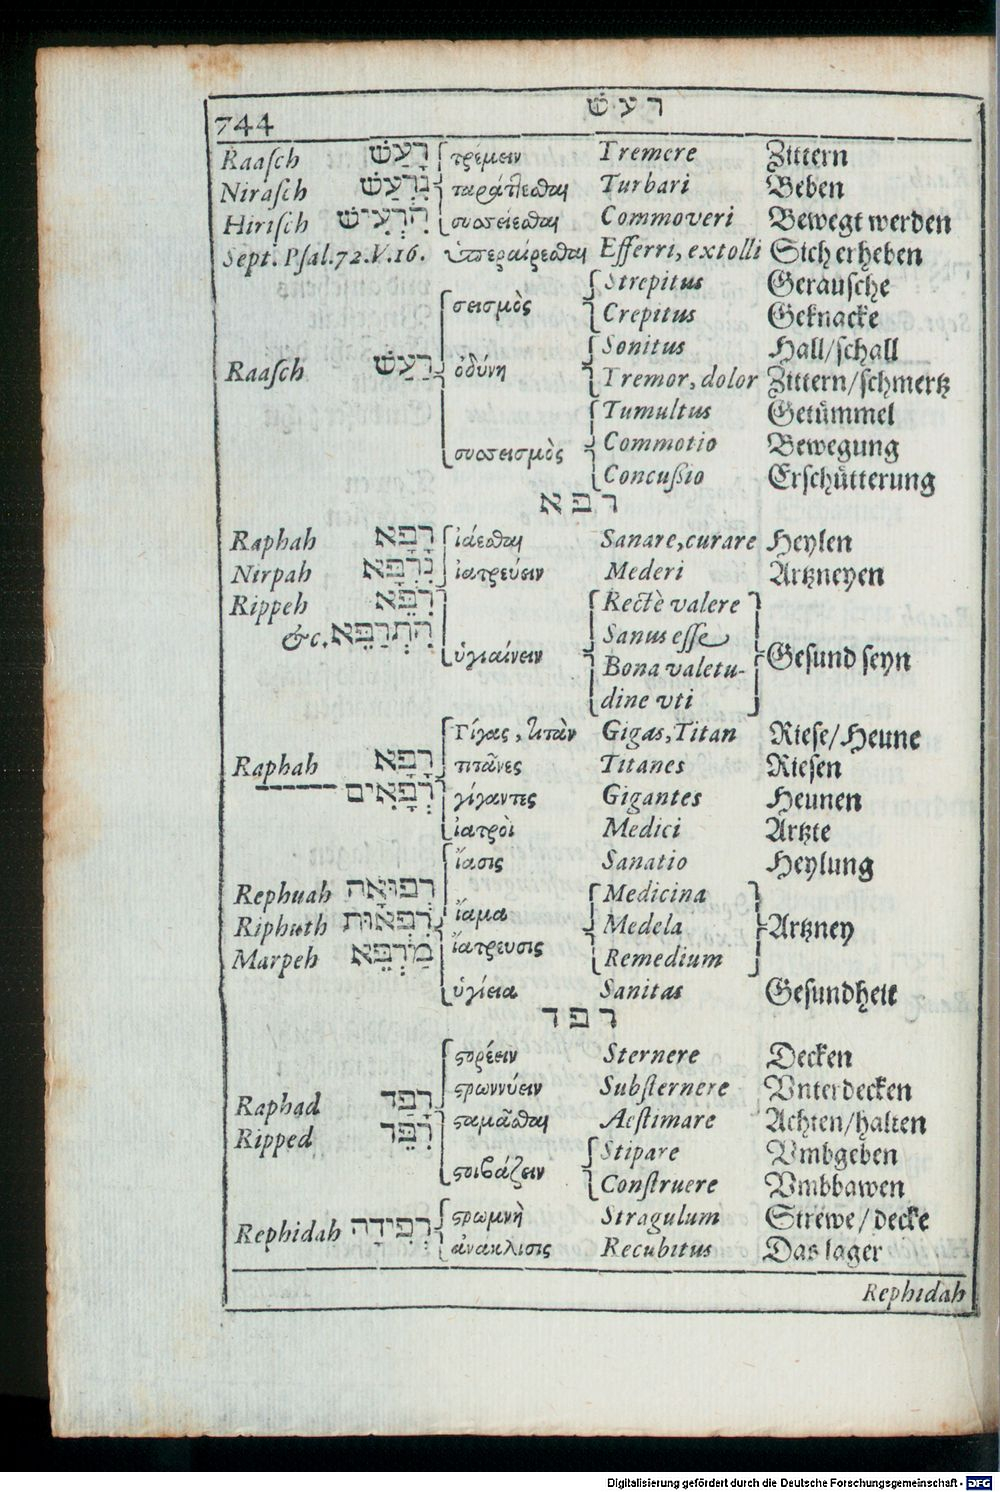 744 רעש
Raaſch רָעַשׁ τρέμειν Tremere Zittern
Niraſch נִרְעַשׁ ταράτεσθαι Turbari Beben
Hiriſch הִרְעִישׁ συσσείεσθαι Commoveri Bewegt werden
Sept. Pſal.72.V.16. ὑπεραίρεσθαι Efferri, extolli Sich erheben
Strepitus Geräuſche
σεισμὸς Crepitus Geknacke
Sonitus Hall/ſchall
Raaſch רַעַשׁ ὀδύνη Tremor, dolor Zittern/ſchmertz
Tumultus Getümmel
συσσεισμὸς Commotio Bewegung
Concußio Erſchütterung
רפא
Raphah רָפָא ἰάεσθαι Sanare, curare Heylen
Nirpah נִרְפָּא ἰατρεύειν Mederi Artzneyen
Rippeh רִפֵּא Rectè valere
&c. הִתְרַפֵּא Sanus eſſe
ὑγιαίνειν Bona valetu- Geſund ſeyn
dine vti
Γίγας, τιτὰν Gigas, Titan Rieſe/Heune
Raphah רָפָא τιτᾶνες Titanes Rieſen
רְפָאִים γίγαντες Gigantes Heunen
ἰατροὶ Medici Artzte
ἴασις Sanatio Heylung
Rephuah רְפוּאָה Medicina
Riphuth רִפְאוּת ἴαμα Medela Artzney
Marpeh מַרְפֵּא ἰάτρευσις Remedium
ὑγίεια Sanitas Geſundheit
רפד
ϛορέειν Sternere Decken
ϛρωννύειν Subſternere Vnterdecken
Raphad רָפַד ϛαμᾶσθαι Aeſtimare Achten/halten
Ripped רִפֵּד Stipare Vmbgeben
ϛοιβάζειν Conſtruere Vmbbawen
ϛρωμνὴ Stragulum Strewe/decke
Rephidah רְפִידָה ἀνάκλισις Recubitus Das lager
Rephidah
Digitalisierung gefördert durch die Deutsche Forschungsgemeinschaft - DFG